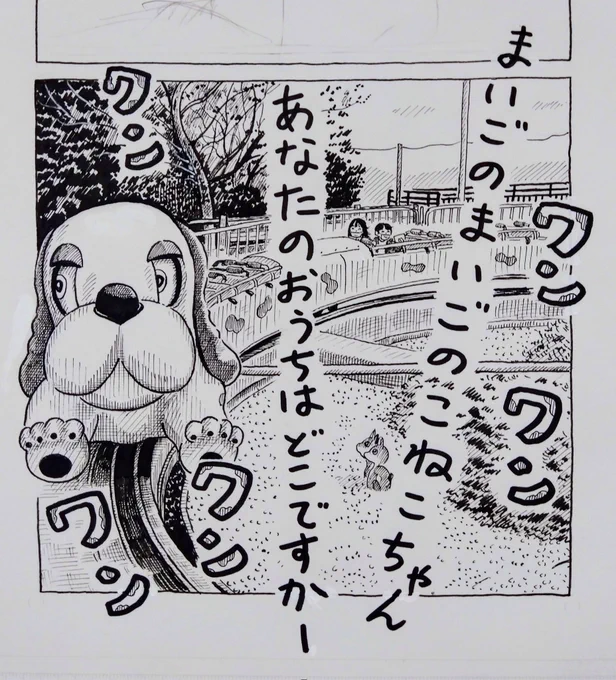 まいごのまいごのこねこちゃん
あなたのおうちはどこですかー
ワン
ワン
ワン
ワン
ワン